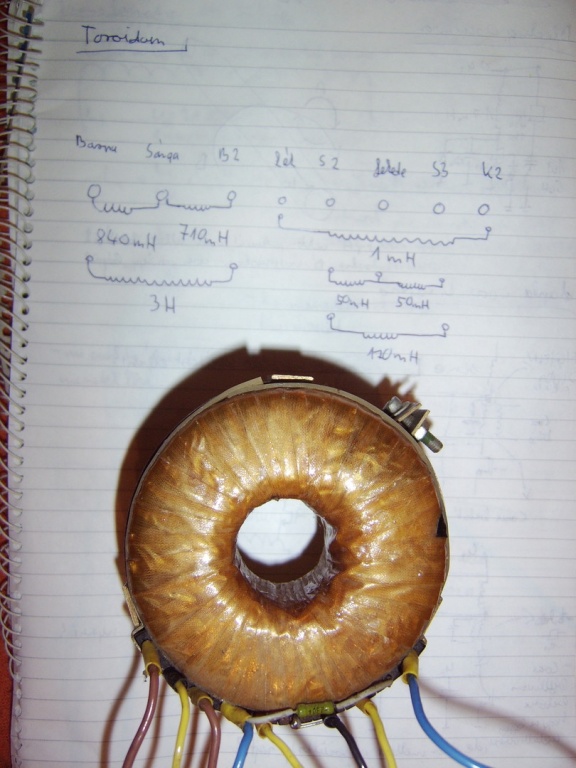 Toroidom
Barna Sárga B2 kék S2 fekete S3 K2
840mH 710mH
1mH
3H
50mH 50mH
120mH